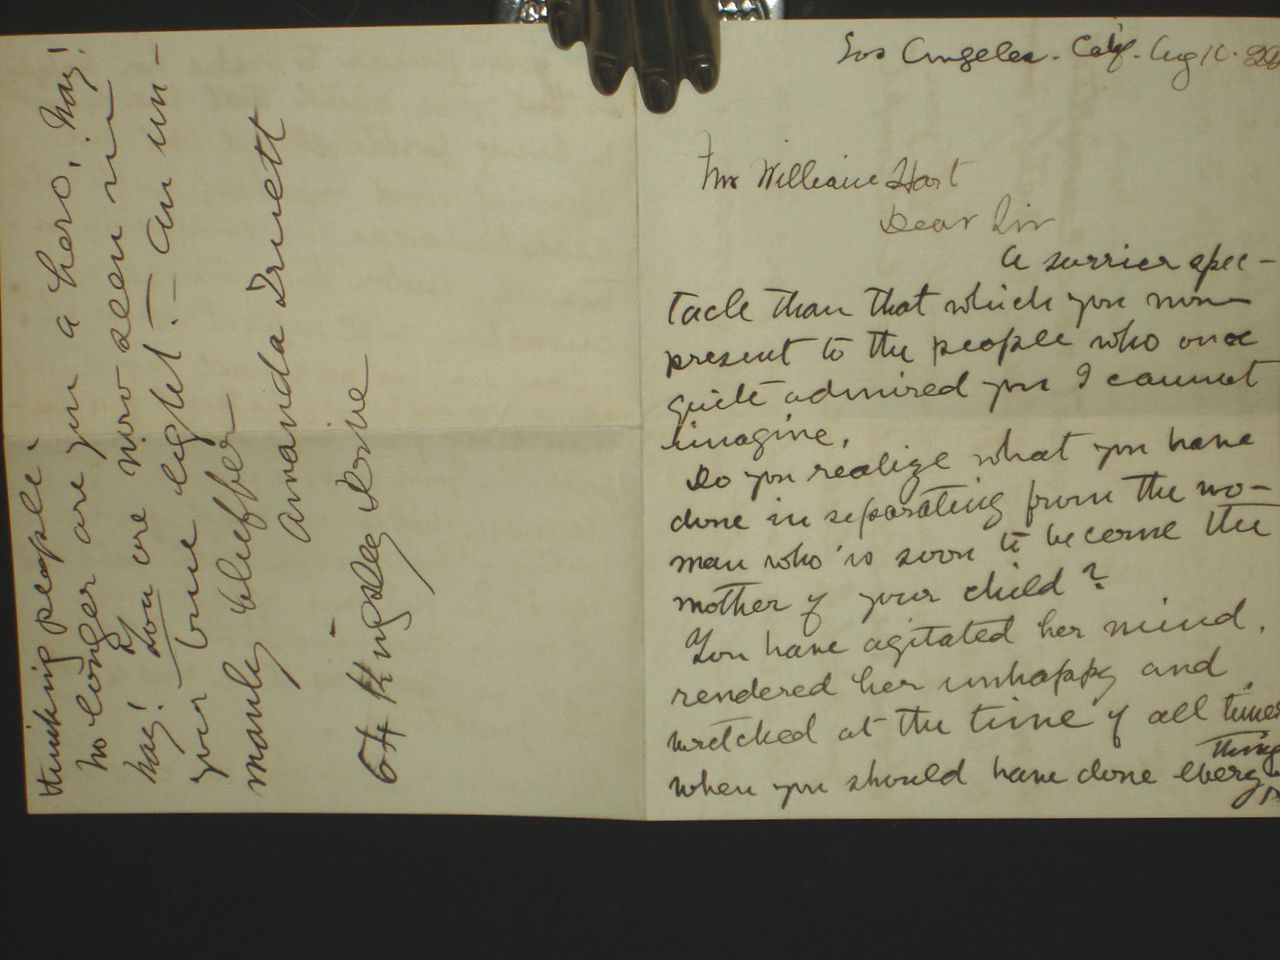 Los Angeles. Calif. Aug 10. 22
Mr William Hart
Dear Sir
A sorrier spec-
tacle than that which you now
present to the people who once
quite admired you I cannot
imagine.
Do you realize what you have
done in separating from the wo-
man who is soon to become the
mother of your child?
You have agitated her mind,
rendered her unhappy and
wretched at the time of all times
when you should have done every
thing
thinking people.
No longer are you a hero, Nay!
Nay! You are now seen in
your true light. - An un-
manly bluffer
Amanda Truett
64 Kingsley Drive